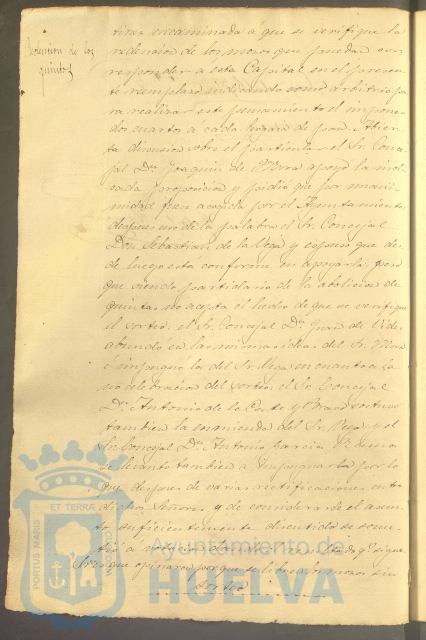 tiva encaminada á que se verifique la
Redencion de los quintos
redencion de los mozos que puedan cor-
responder á esta Capital en el presen-
te reemplazo indicando como arbitrio pa-
ra realizar este pensamiento el imponer
dos cuartos a cada hogaza de pan. Abier-
ta discusion sobre el particular el Sr. Conce-
jal Dn. Joaquin de Mora apoyó la indi-
cada proposicion y pidió que por unani-
midad fuera acogida por el Ayuntamiento
despues usó de la palabra el Sr. Concejal
Don Sebastian de la Vega y expuso que des-
de luego está conforme en apoyarla, pero
que siendo partidario de la abolicion de
quintas no acepta el hecho de que se verifique
el sorteo: el Sr. Concejal Dn. Juan de Vides
abundó en las mismas ideas del Sr. Mora
é impugnó las del Sr. Vega en cuanto a la
no celebracion del sorteo, el Sr. Concejal
Dn. Antonio de la Corte y Bravo sostuvo
tambien la enmienda del Sr. Vega y el
Sr. Concejal Dn. Antonio Garcia
se levantó tambien á impugnarla por lo
que despues de varias rectificaciones entre
dichos Señores y de considerarse el asun-
to suficientemente discutido se some-
tió a votacion
Sres. que opinaron porque se libren los mozos sin
sorteo
PORTUS MARIS ET TERRÆ CUSTODIA
Ayuntamiento de
HUELVA